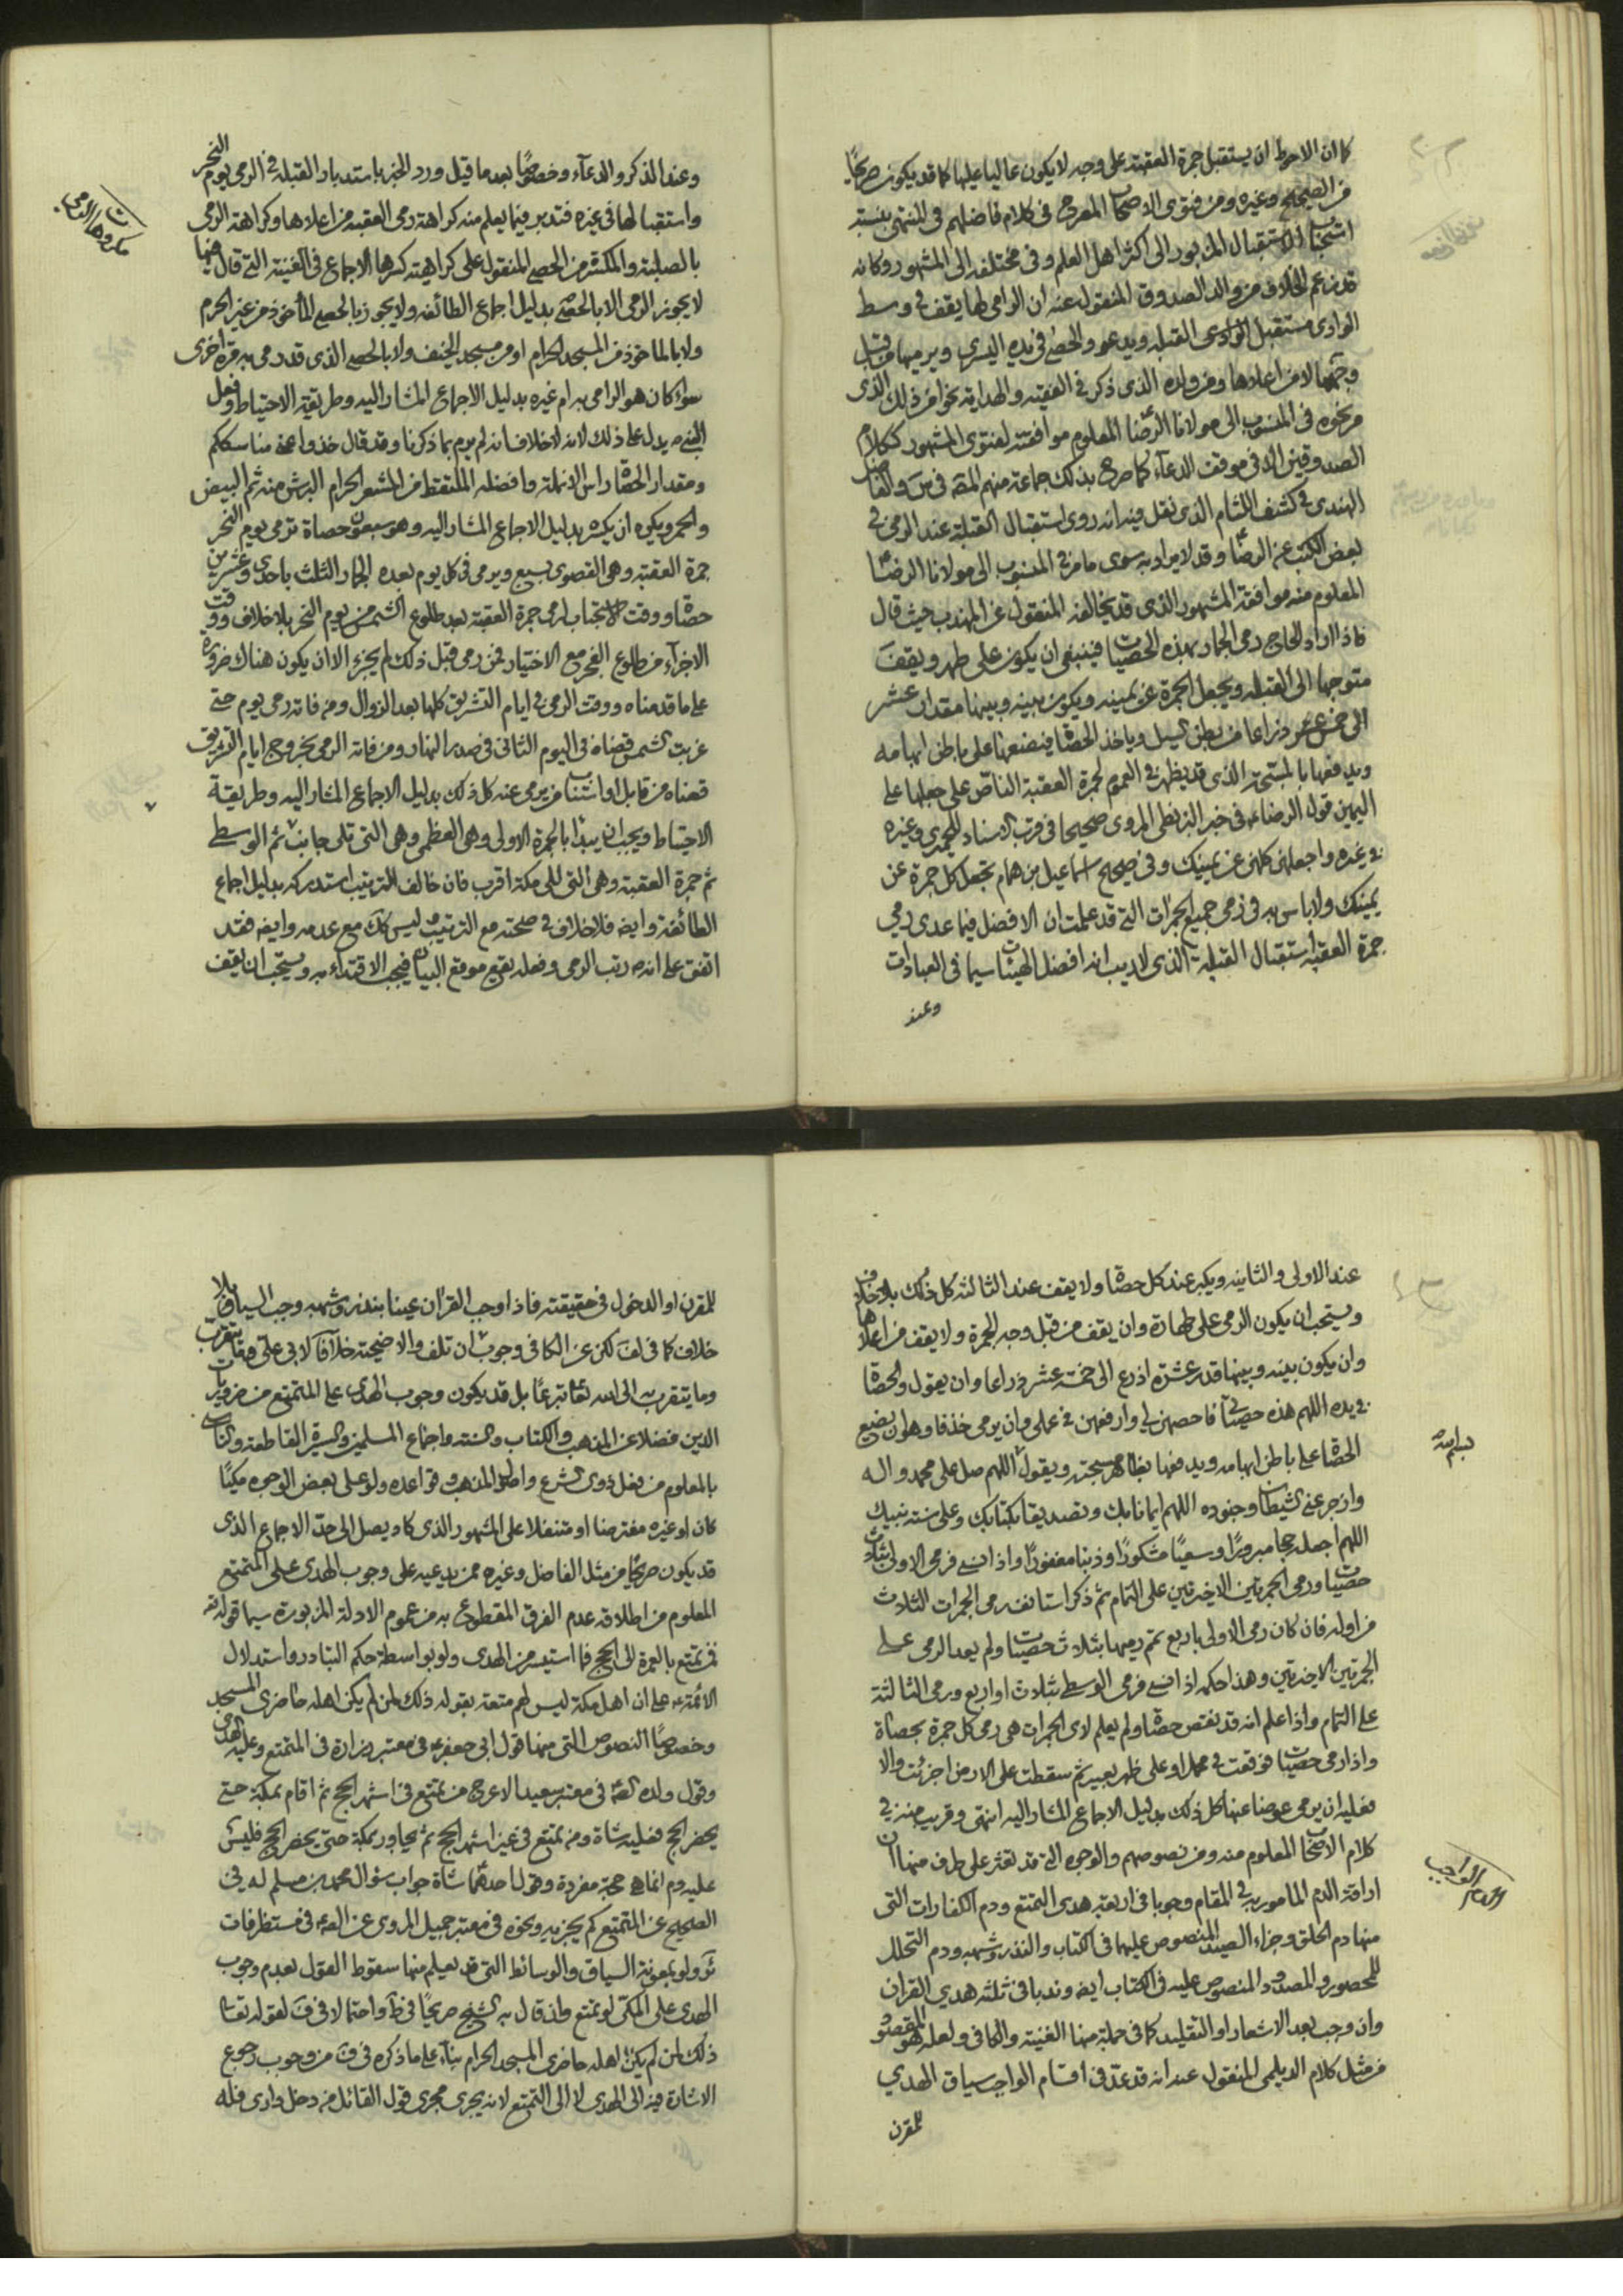 كما ان الاحوط ان يستقبل جمرة العقبة على وجه لا يكون عاليا عليها كما قد يكون صريحا
من الصحيح وغيره ومن فتوى الاصحاب المصرح في كلام فاضلهم في المنتهى بنسبة
استحباب الاستقبال المزبور الى اكثر اهل العلم وفي مختلفه الى المشهور وكانه
قد زعم الخلاف من والد الصدوق المنقول عنه ان الرامي لها يقف في وسط
الوادي مستقبل القبلة ويدعو والحصى في يده اليسرى ويرميها من قبل
وجهها لا من اعلاها ومن ولده الذي ذكر في الفقيه والهداية نحوا من ذلك الذي
مر نحوه في المنسوب الى مولانا الرضا المعلوم موافقته لفتوى المشهور ككلام
الصدوقين الا في موقف الدعاء كما صرح بذلك جماعة منهم في س والفاضل
الهندي في كشف اللثام الذي نقل فيه انه روى استقبال القبلة عند الرمي في
بعض الكتب عن الرضا وقد لا يراد به سوى ما مر في المنسوب الى مولانا الرضا
المعلوم منه موافقة المشهور الذي قد يخالفه المنقول عن المهذب حيث قال
فاذا اراد الحاج رمي الجمار بهذه الحصيات فينبغي ان يكون على طهر ويقف
متوجها الى القبلة ويجعل الجمرة عن يمينه ويكون بينه وبينها مقدار عشر
الى خمس عشر ذراعا من بطن المسيل وياخذ الحصاة فيضعها على باطن ابهامه
ويدفعها بالمسبحة الذي قد يظهر في العموم لجمرة العقبة الناص على جعلها على
اليمين قول الرضا في خبر البزنطي المروي صحيحا في قرب الاسناد للحميري وغيره
في غيره واجعلهن كلهن عن يمينك وفي صحيح اسماعيل بن همام تجعل كل جمرة عن
يمينك ولا باس به في رمي جميع الجمرات التي قد علمت ان الافضل فيما عدى رمي
جمرة العقبة استقبال القبلة الذي لا ريب انه افضل الهيئات سيما في العبادات
وعند
وعند الذكر والدعاء وخصوصا بعد ما قيل ورد الخبر باستدبار القبلة في الرمي يوم النحر
واستقبالها في غيره فتدبر فيما يعلم منه كراهة رمي العقبة من اعلاها وكراهة الرمي
بالصلبة والمكسرة من الحصى المنقول على كراهيته كسرها الاجماع في الغنية التي قال فيها
لا يجوز الرمي الا بالحصى بدليل اجماع الطائفة ولا يجوز بالحصى الماخوذ من غير الحرم
ولا بالماخوذ من المسجد الحرام او من مسجد الخيف ولا بالحصى الذي قد رمى به مرة اخرى
سواء كان هو الرامي به ام غيره بدليل الاجماع المشار اليه وطريقة الاحتياط وفعل
النبي ص يدل على ذلك لانه لا خلاف انه لم يرم بما ذكرنا وقد قال خذوا عني مناسككم
ومقدار الحصاة راس الانملة وافضله الملتقط من المشعر الحرام البرش منه ثم البيض
والحمر ويكره ان يكسر بدليل الاجماع المشار اليه وهو سبعون حصاة ترمى يوم النحر
جمرة العقبة وهي القصوى بسبع ويرمى في كل يوم بعده الجمار الثلث باحدى وعشرين
حصاة ووقت الاستحباب لرمي جمرة العقبة بعد طلوع الشمس من يوم النحر بلا خلاف ووقت
الاجزاء من طلوع الفجر مع الاختيار فمن رمى قبل ذلك لم يجزء الا ان يكون هناك ضرورة
على ما قدمناه ووقت الرمي في ايام التشريق كلها بعد الزوال ومن فاته رمى يوم حتى
غربت الشمس قضاه في اليوم الثاني في صدر النهار ومن فاته الرمي بخروج ايام التشريق
قضاه من قابل او استناب من يرمي عنه كل ذلك بدليل الاجماع المشار اليه وطريقة
الاحتياط ويجب ان يبتدا بالجمرة الاولى وهي العظمى وهي التي تلي جانب ثم الوسطى
ثم جمرة العقبة وهي التي الى مكة اقرب فان خالف الترتيب استدركه بدليل اجماع
الطائفة وايضه فلا خلاف في صحته مع الترتيب وليس كك مع عدمه وايضه فقد
اتفق على انه ص رتب الرمي وفعله يقع موقع البيان فيجب الاقتداء به ويستحب ان يقف
مكروهات الرامي
عند الاولى والثانية ويكبر عند كل حصاة ولا يقف عند الثالثة كل ذلك بلا خلاف
ويستحب ان يكون الرمي على طهارة وان يقف من قبل وجه الجمرة ولا يقف من اعلاها
وان يكون بينه وبينها قدر عشرة اذرع الى خمسة عشر ذراعا وان يقول والحصاة
في يده اللهم هذه حصياتي فاحصهن لي وارفعهن في عملي وان يرمي خذفا وهو ان يضع
الحصاة على باطن ابهامه ويدفعها بظاهر مسبحته ويقول اللهم صل على محمد واله
وازجر عني الشيطان وجنوده اللهم ايمانا بك وتصديقا بكتابك وعلى سنة نبيك
اللهم اجعله حجا مبرورا وسعيا مشكورا وذنبا مغفورا واذا نسي فرمى الاولى بثلاث
حصيات ورمى الجمرتين الاخيرتين على التمام ثم ذكر استانف رمي الجمرات الثلاث
من اوله فان كان رمى الاولى باربع تمم رميها بثلاث حصيات ولم يعد الرمي على
الجمرتين الاخيرتين وهذا حكمه اذا نسي فرمى الوسطى بثلاث او اربع ورمى الثالثة
على التمام واذا علم انه قد نقص حصاة ولم يعلم لاي الجمرات هي رمى كل جمرة بحصاة
واذا رمى حصيات فوقعت في محمل او على ظهر بعير ثم سقطت على الارض اجزئت والا
فعليه ان يرمي عوضا عنها كل ذلك بدليل الاجماع المشار اليه انتهى وقريب منه في
كلام الاصحاب المعلوم منه ومن نصوصهم والوجوه التي قد تعثر على طرف منها ان
اراقة الدم المامور به في المقام وجوبا في اربعة هدي التمتع ودم الكفارات التي
منها دم الحلق وجزاء الصيد المنصوص عليهما في الكتاب والنذر وشبهه ودم التحلل
للمحصور والمصدود المنصوص عليه في الكتاب ايضه وندبا في ثلثة هدي القران
وان وجب بعد الاشعار او التقليد كما في جملة منها الغنية والكافي ولعله هو المقصود
من مثل كلام الديلمي المنقول عنه انه قد عد في اقسام الواجب سياق الهدي
للمقرن
اقسام الدم الواجب
للمقرن او الدخول في حقيقته فاذا اوجب القران عينا بنذر وشبهه وجب السياق بلا
خلاف كما في لف لكن عن الكافي وجوب ان تلف والاضحية خلافا لابي علي وما يتقرب
وما يتقرب به الى الله تعا تبرعا بل قد يكون وجوب الهدي على المتمتع من ضروريات
الدين فضلا عن المذهب والكتاب والسنة واجماع المسلمين والسيرة القاطعة والتاسي
بالمعلوم من فعل ذوي الشرع واصول المذهب وقواعده ولو على بعض الوجوه مكيا
كان او غيره مفترضا او متنفلا على المشهور الذي كاد يصل الى حد الاجماع الذي
قد يكون صريحا من مثل الفاضل وغيره ممن يدعيه على وجوب الهدي على المتمتع
المعلوم من اطلاقه عدم الفرق المقطوع به من عموم الادلة المزبورة سيما قوله تعا
فمن تمتع بالعمرة الى الحج فما استيسر من الهدي ولو بواسطة حكم التبادر واستدلال
الائمة ع على ان اهل مكة ليس لهم متعة بقوله ذلك لمن لم يكن اهله حاضري المسجد
وخصوصا النصوص التي منها قول ابي جعفر ع في معتبر زرارة في المتمتع وعليه الهدي
وقول ولده الصادق في معتبر سعيد الاعرج من تمتع في اشهر الحج ثم اقام بمكة حتى
يحضر الحج فعليه شاة ومن تمتع في غير اشهر الحج ثم يجاور بمكة حتى يحضر الحج فليس
عليه دم انما هي حجة مفردة وقول احدهما شاة جواب سؤال محمد بن مسلم له في
الصحيح عن المتمتع كم يجزيه ونحوه في معتبر جميل المروي عن في مستطرفات
ئر ولو بمعونة السياق والوسائط التي قد يعلم منها سقوط القول بعدم وجوب
الهدي على المكي لو تمتع وان قال به الشيخ صريحا في ط واحتمالا في ف لقوله تعا
ذلك لمن لم يكن اهله حاضري المسجد الحرام بناء على ما ذكره في ف من وجوب رجوع
الاشارة فيه الى الهدي لا الى التمتع لانه يجري مجرى قول القائل من دخل داري فله